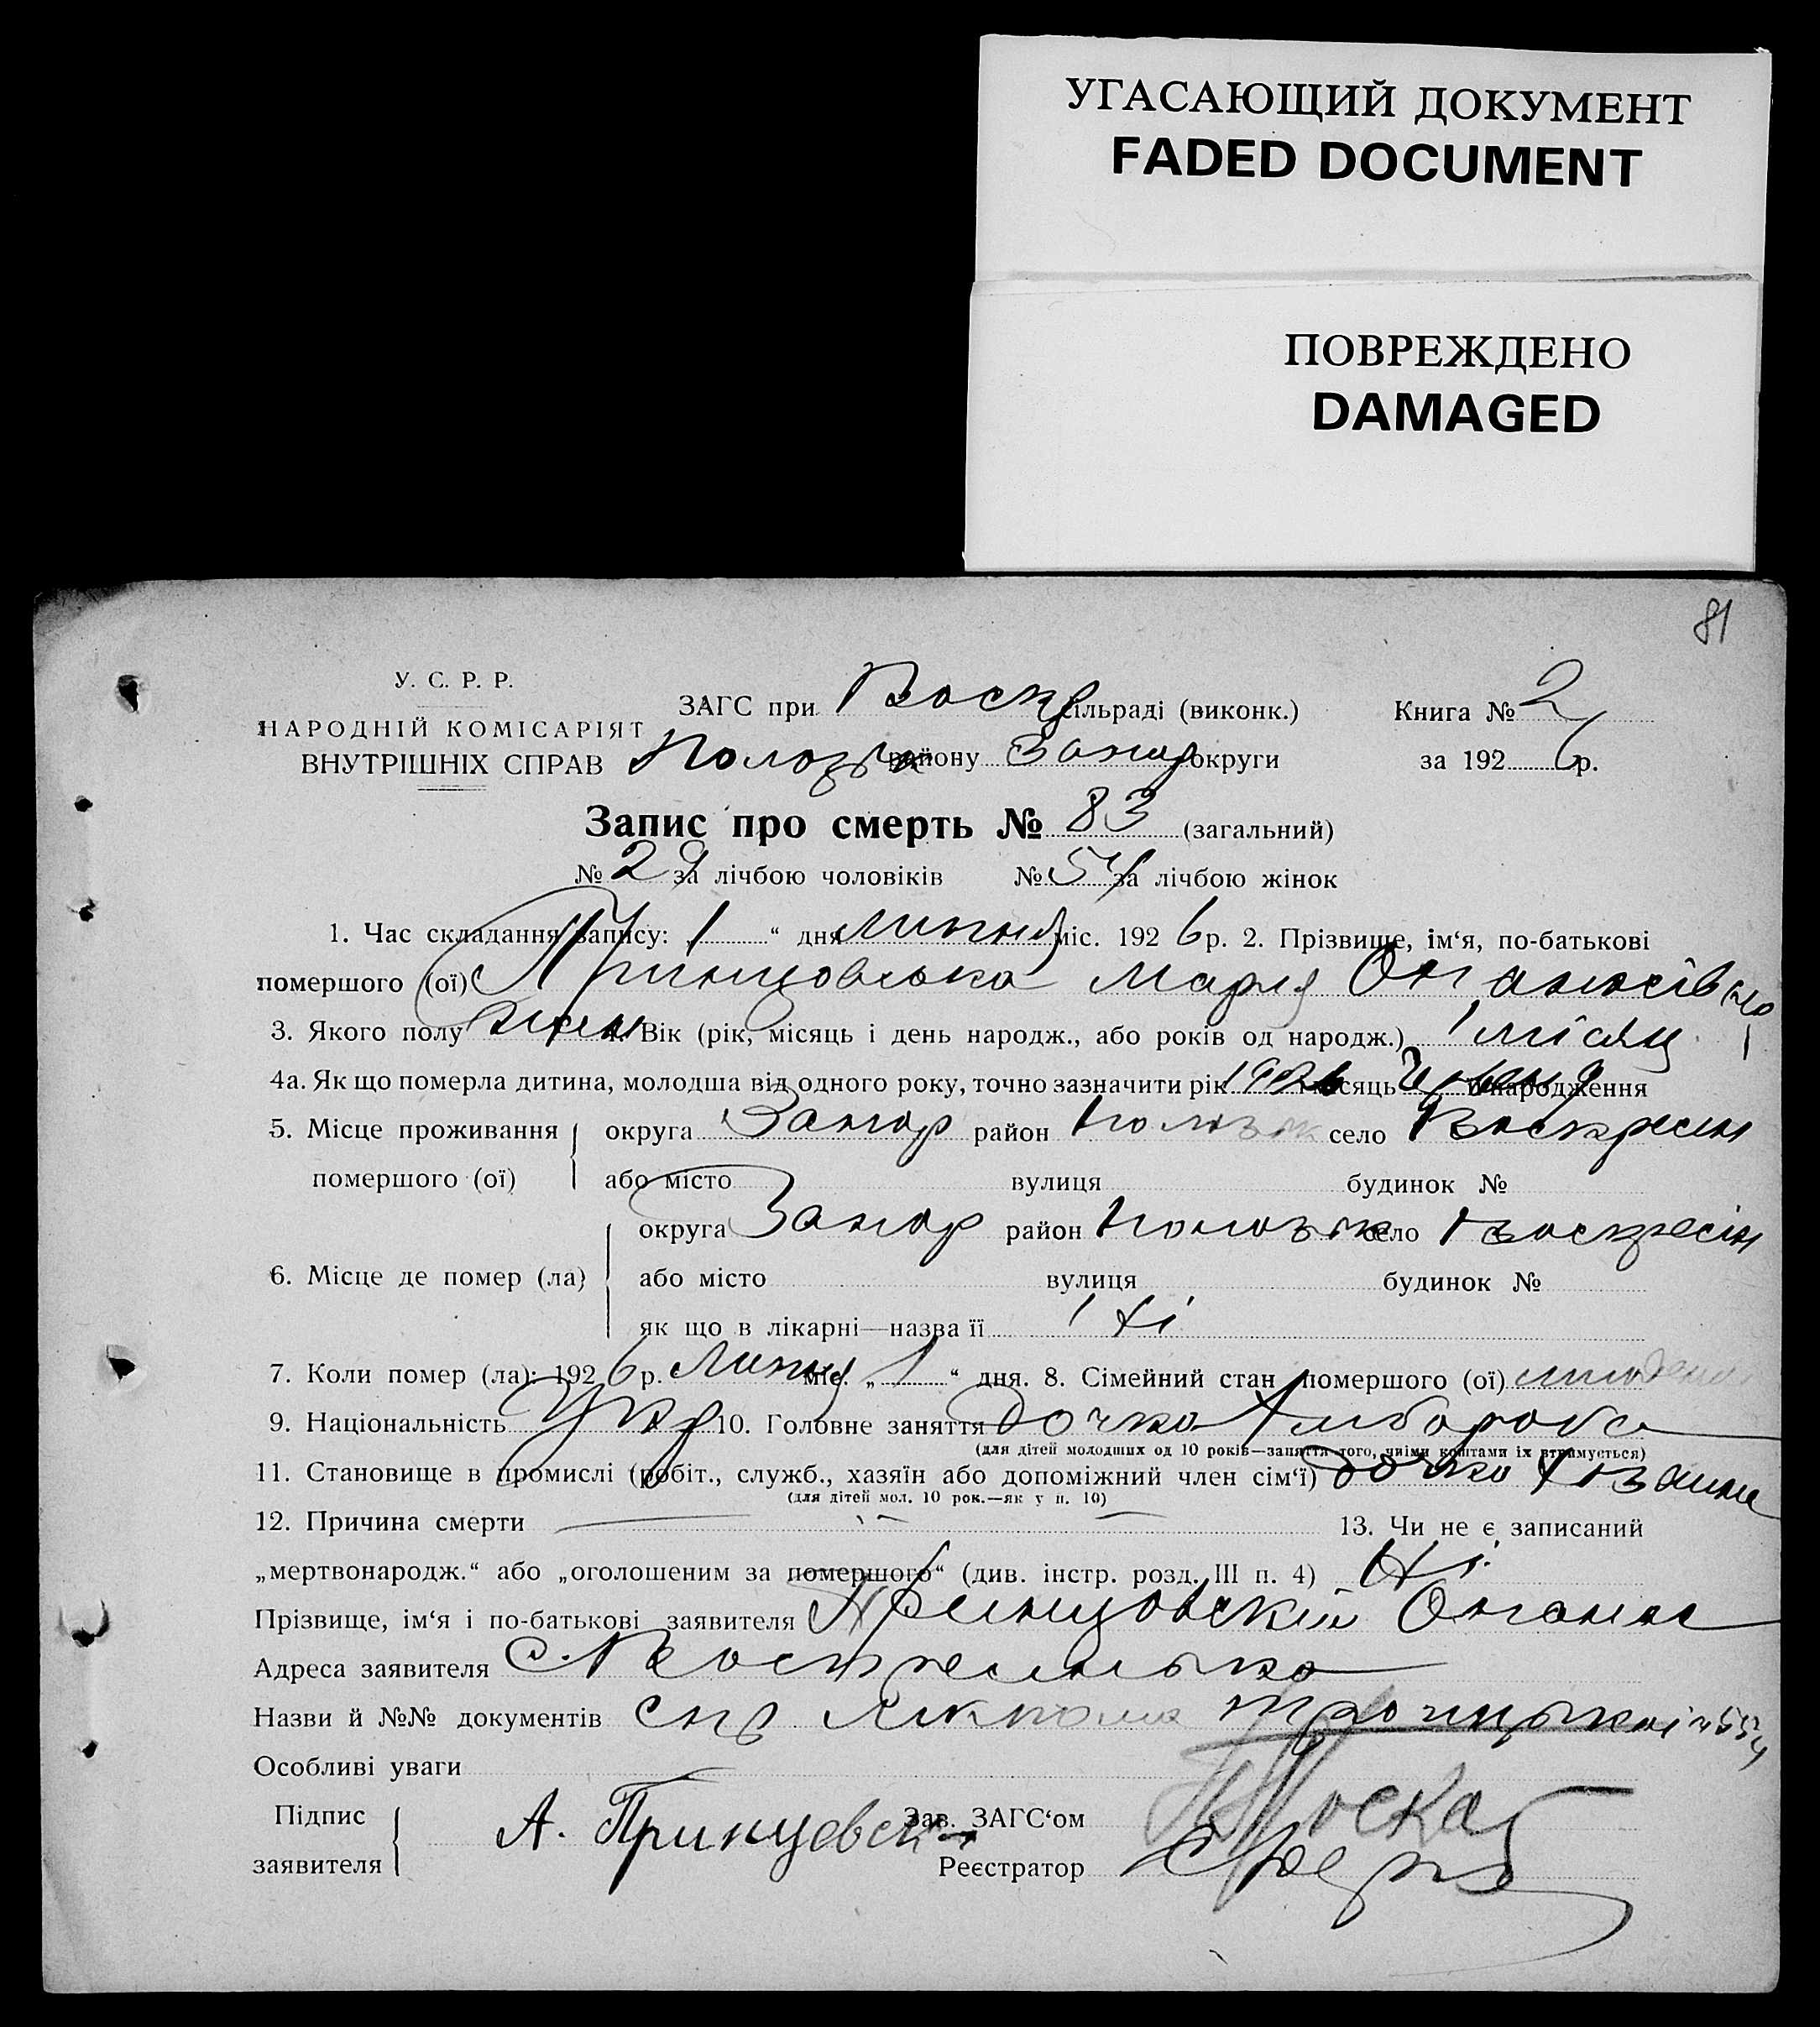 УГАСАЮЩИЙ ДОКУМЕНТ
FADED DOCUMENT
ПОВРЕЖДЕНО
DAMAGED
81
У. С. Р. Р.
НАРОДНІЙ КОМІСАРІЯТ
ВНУТРІШНІХ СПРАВ
ЗАГС при Воскр сільраді (виконк.) Книга № 2
району Запор округи за 1926 р.
Запис про смерть № 83 (загальний)
№ 29 за лічбою чоловіків № 54 за лічбою жінок
1. Час складання запису: „ 1 “ дня Липня міс. 1926 р. 2. Прізвище, ім‘я, по-батькові
помершого (ої) Принцовська Марія
3. Якого полу жін 4. Вік (рік, місяць і день народж., або років од народж.) 1 місяц
4а. Як що померла дитина, молодша від одного року, точно зазначити рік 1926 місяць й народження
5. Місце проживання помершого (ої) округа Запор район село Воскресен
або місто вулиця будинок №
6. Місце де помер (ла) округа Запор район село Воскресін
або місто вулиця будинок №
як що в лікарні—назва її Ні
7. Коли помер (ла): 1926 р. Липня міс. „ 1 “ дня. 8. Сімейний стан помершого (ої)
9. Національність Укр 10. Головне заняття дочка Хлібороба
(для дітей молодших од 10 років—заняття того, чиїми коштами їх втримується)
11. Становище в промислі (робіт., служб., хазяїн або допоміжний член сім‘ї) дочка Хозяина
(для дітей мол. 10 рок.—як у п. 10)
12. Причина смерти 13. Чи не є записаний
„мертвонародж.“ або „оголошеним за помершого“ (див. інстр. розд. III п. 4) Ні
Прізвище, ім‘я і по-батькові заявителя Принцовскій
Адреса заявителя с.
Назви й №№ документів
Особливі уваги
Підпис заявителя А. Принцевск Зав. ЗАГС‘ом
Реєстратор